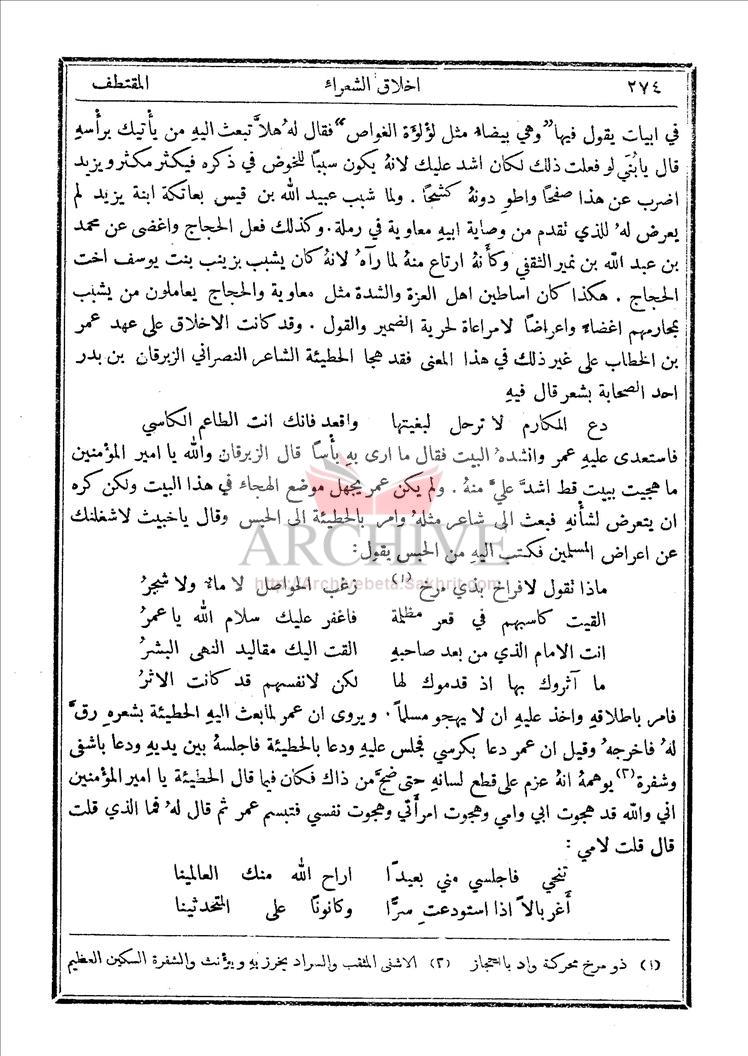 ٢٧٤ اخلاق الشعراء المقتطف
في ابيات يقول فيها "وهي بيضاء مثل لؤلؤة الغواص" فقال لهُ هلاَّ تبعث اليهِ من يأتيك برأسهِ
قال يابُنَي لو فعلت ذلك لكان اشد عليك لانهُ يكون سببًا للخوض في ذكره فيكثر مكثر ويزيد
اضرب عن هذا صفحًا واطوِ دونهُ كشحًا . ولما شبب عبيد الله بن قيس بعاتكة ابنة يزيد لم
يعرض لهُ للذي تقدم من وصاية ابيهِ معاوية في رملة . وكذلك فعل الحجاج واغضى عن محمد
بن عبد الله بن نمير الثقفي وكأَنهُ ارتاع منهُ لما رآهُ لانهُ كان يشبب بزينب بنت يوسف اخت
الحجاج . هكذا كان اساطين اهل العزة والشدة مثل معاوية والحجاج يعاملون من يشبب
بمحارمهم اغضاءً واعراضًا لامراعاة لحرية الضمير والقول . وقد كانت الاخلاق على عهد عمر
بن الخطاب على غير ذلك في هذا المعنى فقد هجا الحطيئة الشاعر النصراني الزبرقان بن بدر
احد الصحابة بشعر قال فيهِ
دع المكارم لا ترحل لبغيتها واقعد فانك انت الطاعم الكاسي
فاستعدى عليهِ عمر وانشدهُ البيت فقال ما ارى بهِ بأسًا قال الزبرقان والله يا امير المؤمنين
ما هجيت ببيت قط اشدَّ عليَّ منهُ . ولم يكن عمر يجهل موضع الهجاء في هذا البيت ولكن كره
ان يتعرض لشأنهِ فبعث الى شاعر مثلهُ وامر بالحطيئة الى الحبس وقال ياخبيث لاشغلنك
عن اعراض المسلمين فكتب اليهِ من الحبس يقول :
ARCHIVE
http://Archivebeta.Sakhrit.com
ماذا تقول لافراخ بذي مرخ (١) زغب الحواصل لا ماءٌ ولا شجرُ
القيت كاسبهم في قعر مظلمة فاغفر عليك سلام الله يا عمرُ
انت الامام الذي من بعد صاحبهِ القت اليك مقاليد النهى البشرُ
ما آثروك بها اذ قدموك لها لكن لانفسهم قد كانت الاثرُ
فامر باطلاقهِ واخذ عليهِ ان لا يهجو مسلماً . ويروى ان عمر لما بعث اليهِ الحطيئة بشعرهِ رقَّ
لهُ فاخرجهُ وقيل ان عمر دعا بكرسي فجلس عليهِ ودعا بالحطيئة فاجلسهُ بين يديهِ ودعا باشفى
وشفرة (٢) يوهمهُ انهُ عزم على قطع لسانهِ حتى ضجَّ من ذاك فكان فيما قال الحطيئة يا امير المؤمنين
اني والله قد هجوت ابي وامي وهجوت امرأتي وهجوت نفسي فتبسم عمر ثم قال لهُ فما الذي قلت
قال قلت لامي :
تنحي فاجلسي مني بعيدًا اراح الله منك العالمينا
أَغر بالاً اذا استودعتِ سرًّا وكانونًا على المتحدثينا
(١) ذو مرخ محركة واد بالحجاز (٢) الاشفى المثقب والسراد يخرز بهِ ويؤنث والشفرة السكين العظيم